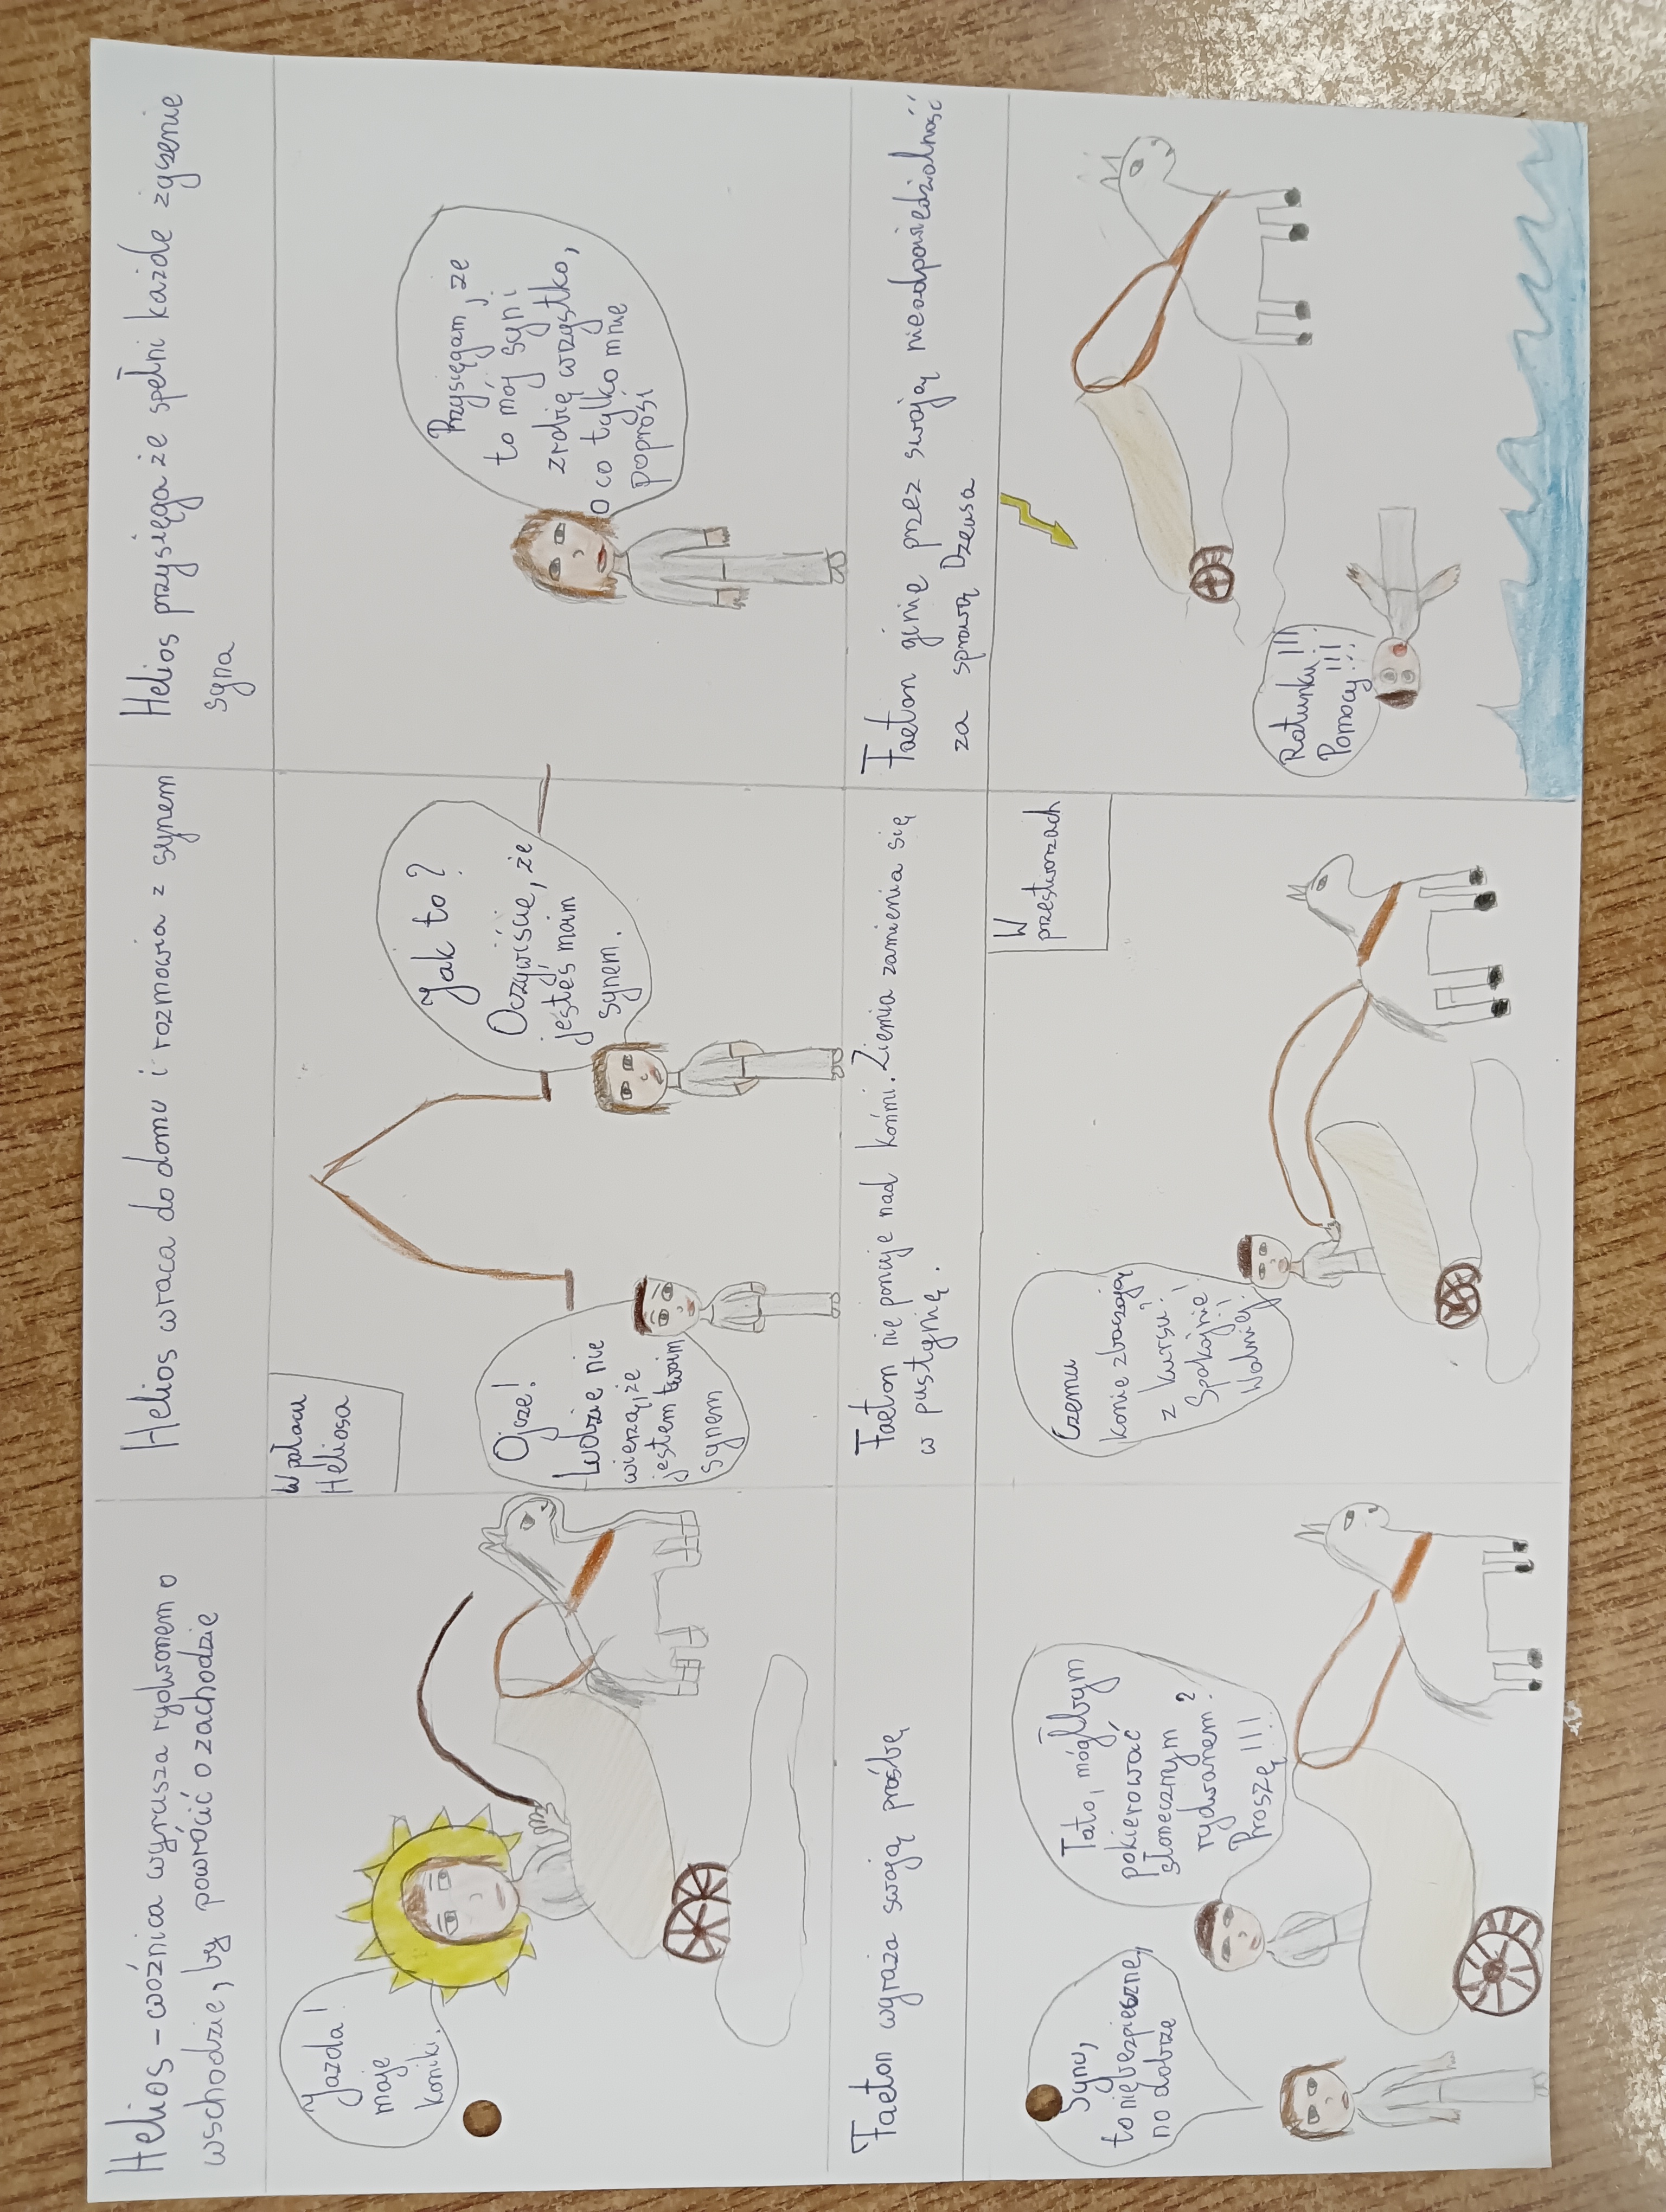 Helios - woźnica wyrusza rydwanem o
wschodzie, by powrócić o zachodzie
Jazda!
moje
koniki.
Helios wraca do domu i rozmowia z synem
W pałacu
Heliosa
Ojcze!
Ludzie nie
wierzą, że
jestem twoim
synem
Jak to?
Oczywiście, że
jesteś moim
synem.
Helios przysięga że spełni każde życzenie
syna
Przysięgam, że
to mój syn i
zrobię wszystko,
o co tylko mnie
poprosi
Faeton wyraża swoją prośbę
Synu,
to niebezpieczne,
no dobrze
Tato, mógłbym
pokierować
słonecznym
rydwanem?
Proszę!!!
Faeton nie panuje nad końmi. Ziemia zamienia się
w pustynię.
W
przestworzach
Czemu
konie zbaczają
z kursu?
Spokojnie!
Wolniej!
Faeton ginie przez swoją nieodpowiedzialność
za sprawą Dzeusa
Ratunku!!!
Pomocy!!!